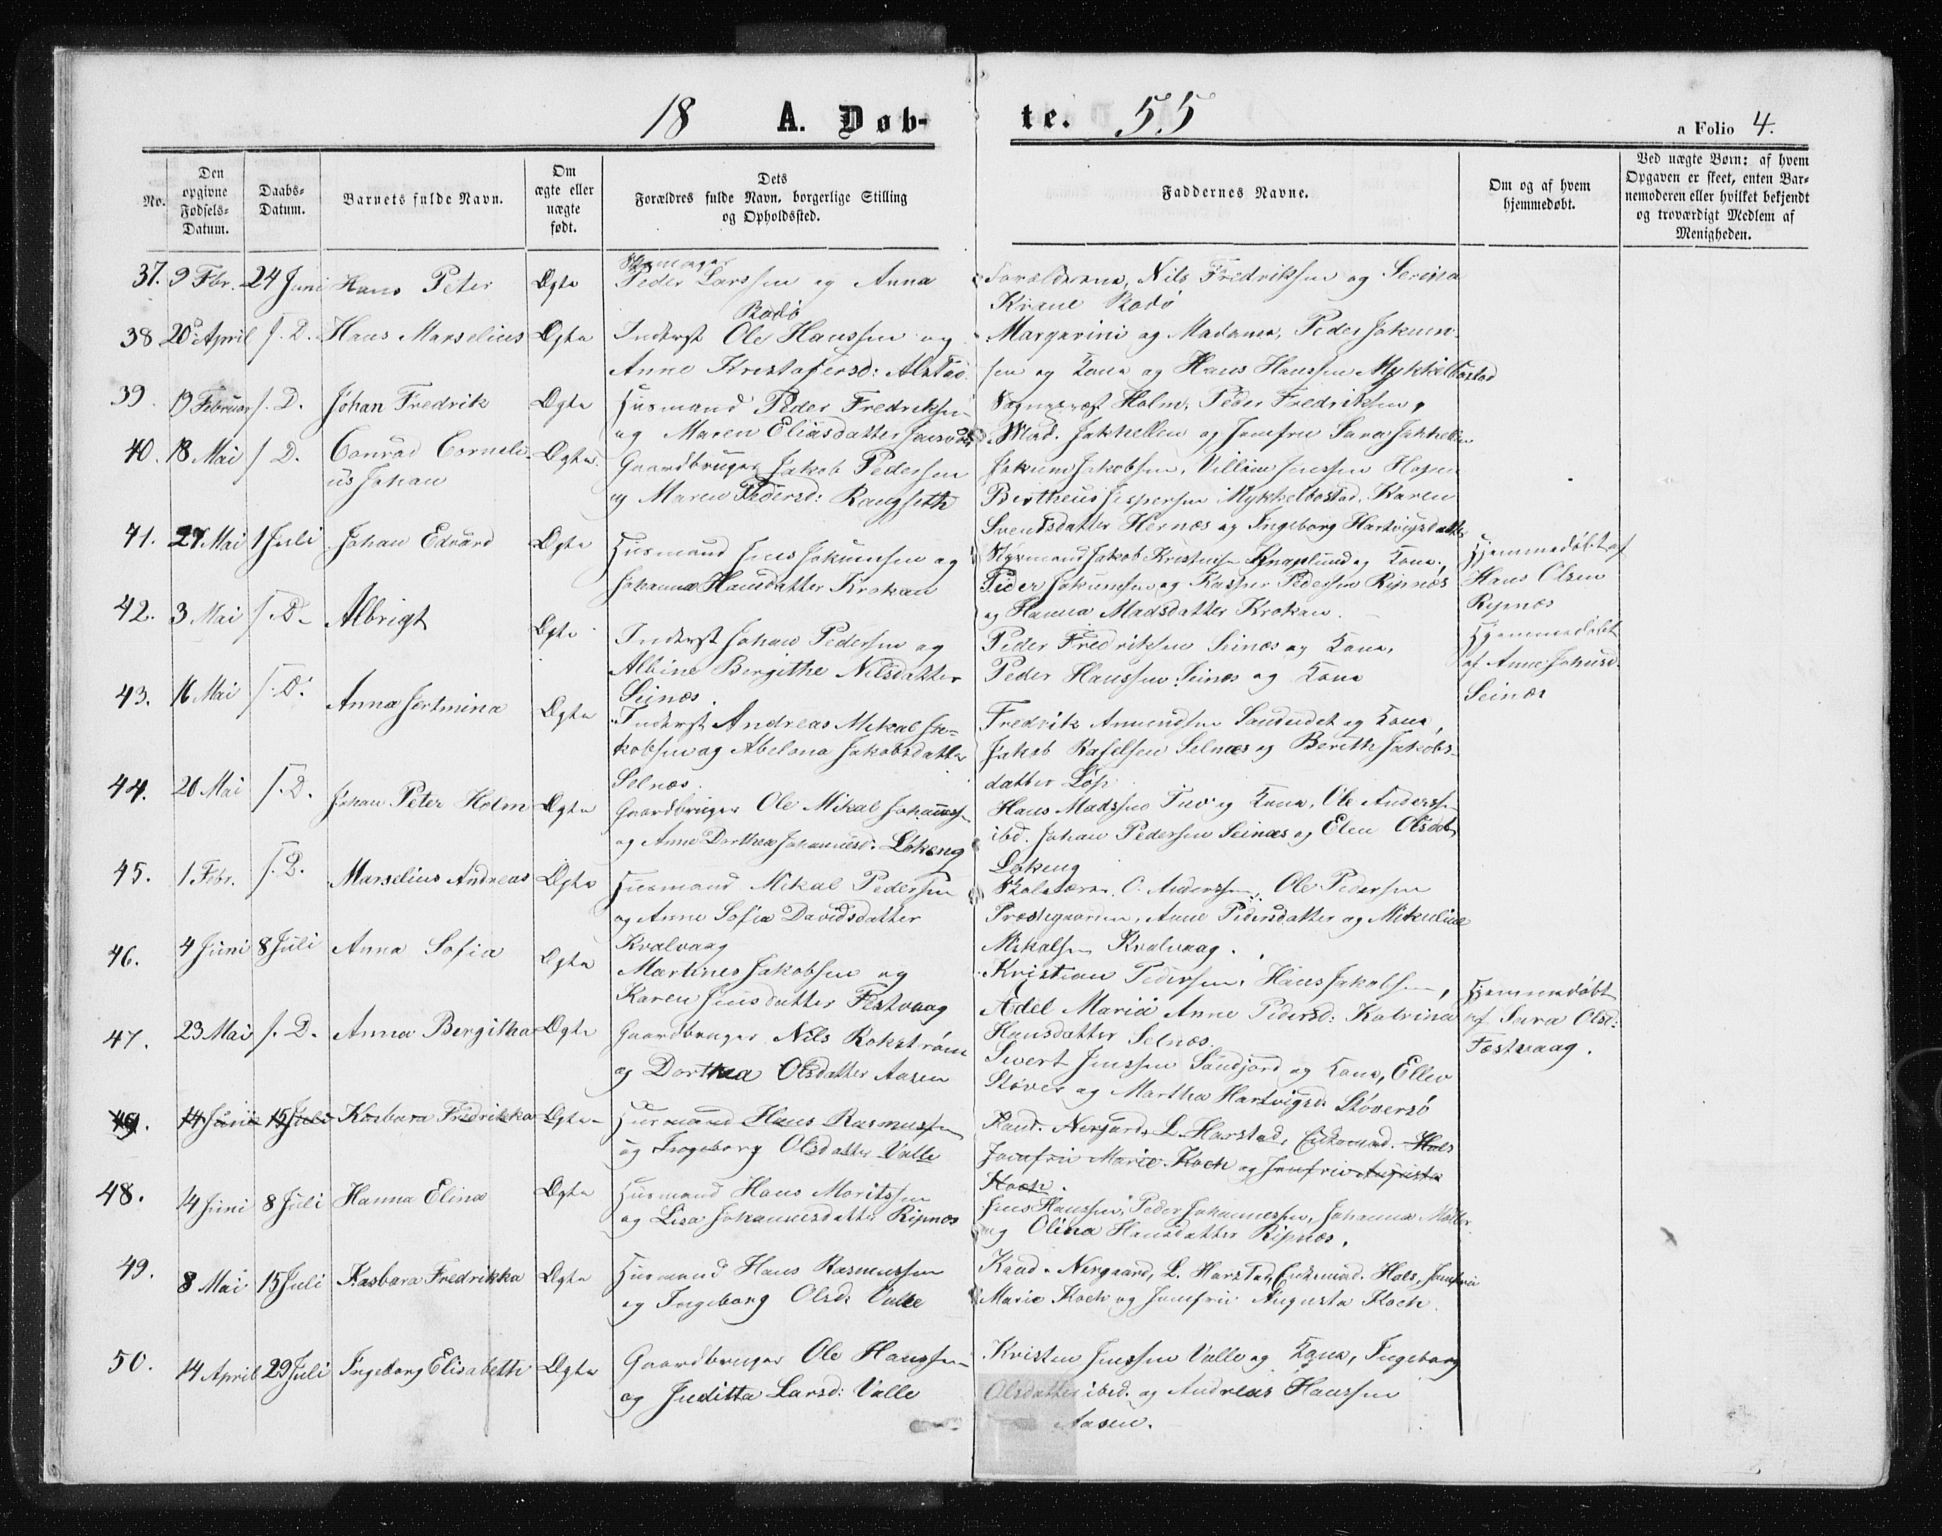 18 A. Døb- te. 55
a Folio 4.
No. | Den opgivne Fødsels-Datum. | Daabs-Datum. | Barnets fulde Navn. | Om ægte eller uægte født. | Dets Forældres fulde Navn, borgerlige Stilling og Opholdssted. | Faddernes Navne. | Om og af hvem hjemmedøbt. | Ved uægte Børn: af hvem Opgaven er skeet, enten Barnemoderen eller hvilket bekjendt og troværdigt Medlem af Menigheden.
37. 9 Febr. 24 Juni Hans Peter Ægte
Peder Larssen og Anna
Rødø
Forældrene, Nils Fredriksen og Serina
Krane Rødø
38 20 April s. D. Hans Marselius Ægte
Inderst Ole Hanssen og
Anne Kristofersd: Alstad
Margarini og Madame, Peder Jakum-
sen og Kone og Hans Hanssen Mykkelbostad
39. 19 Februar s. D. Johan Fredrik Ægte
Husmand Peder Fredriksen
og Maren Eliasdatter
Holm, Peder Fredriksen,
Mad. Jakhellen og Jomfru Sara Jakhellen
40. 18 Mai s. D. Conrad Corneli-
us Johan Ægte
Gaardbruger Jakob Pedersen
og Maren Pedersd: Rangseth
Jakum Jakobsen, Villim Jenssen Hopen
Bertheus Jespersen Mykkelbostad, Karen
Svendsdatter Hernæs og Ingeborg Hartvigsdatter
41. 27 Mai 1 Juli Johan Edvard Ægte
Husmand Jens Jakumsen og
Johanna Hansdatter Krokan
Styrmand Jakob Kristensen Knaplund og Kone,
Peder Jakumsen og Kasper Pedersen Ripnæs
og Hanna Madsdatter Krokan.
Hjemmedøbt af
Hans Olsen
Ripnæs
42. 3 Mai s. D. Albrigt Ægte
Inderst Johan Pedersen og
Albine Bergithe Nilsdatter
Seinæs.
Peder Fredriksen Seinæs og Kone,
Peder Hanssen Seinæs og Kone
Hjemmedøbt
af Anne Johnsd.
Seinæs
43. 16 Mai s. D. Anna Jertmina Ægte
Inderst Andreas Mikal Ja-
kobsen og Abelona Jakobsdatter
Selnæs.
Fredrik Amundsen Sundet og Kone,
Jakob Rafelsen Selnæs og Bereth Jakobs-
datter Løp
44. 20 Mai s. D. Johan Peter Holm Ægte
Gaardbruger Ole Mikal Johanness.
og Anne Dorthea Johannesd: Løkeng
Hans Madssen Tuv og Kone, Ole Anderssen
ibd. Johan Pedersen Seinæs og Elen Olsdat
Løkeng
45. 1 Febr. s. D. Marselius Andreas Ægte
Husmand Mikal Pedersen
og Anne Sofia Davidsdatter
Kvalvaag
Skolelærer O. Anderssen, Ole Pedersen
Præstegaarden, Anne Pedersdatter og Mikaline
Mikalsen Kvalvaag.
46. 4 Juni 8 Juli Anna Sofia Ægte
Martines Jakobsen og
Karen Jensdatter Festvaag
Kristian Pedersen, Hans Jakobsen,
Adel Maria Anne Pedersd: Katrina
Hansdatter Selnæs.
Hjemmedøbt
af Sara Olsd:
Festvaag.
47. 23 Mai s. D. Anna Bergitha Ægte
Gaardbruger Nils Rokstrøm
og Dorthea Olsdatter Aasen
Sivert Jenssen Sandjord og Kone, Ellen
Støver og Martha Hartvigsd. Støversø
49. 14 Juni 15 Juli Karbara Fredrikka Ægte
Husmand Hans Rasmussen
og Ingeborg Olsdatter Valle
Kand. Nergård, L. Harstad, Enkemad. Hols
Jomfru Marie Koch og Jomfru Augusta
Koch.
48. 14 Juni 8 Juli Hanna Elina Ægte
Husmand Hans Moritssen
og Lisa Johannesdatter Ripnæs
Jens Hanssen, Peder Johannessen, Johanna Møller
og Olina Hansdatter Ripnæs.
49. 8 Mai 15 Juli Karbara Fredrikka Ægte
Husmand Hans Rasmussen
og Ingeborg Olsd: Valle
Kand. Nergaard, L. Harstad, Enkemad. Hols, Jomfru
Marie Koch og Jomfru Augusta Koch.
50. 14 April 29 Juli Ingeborg Elisabeth Ægte
Gaardbruger Ole Hanssen
og Juditta Larsd: Valle
Kristen Jenssen Valle og Kone, Ingeborg
Olsdatter ibd. og Andreas Hanssen
Aasen.